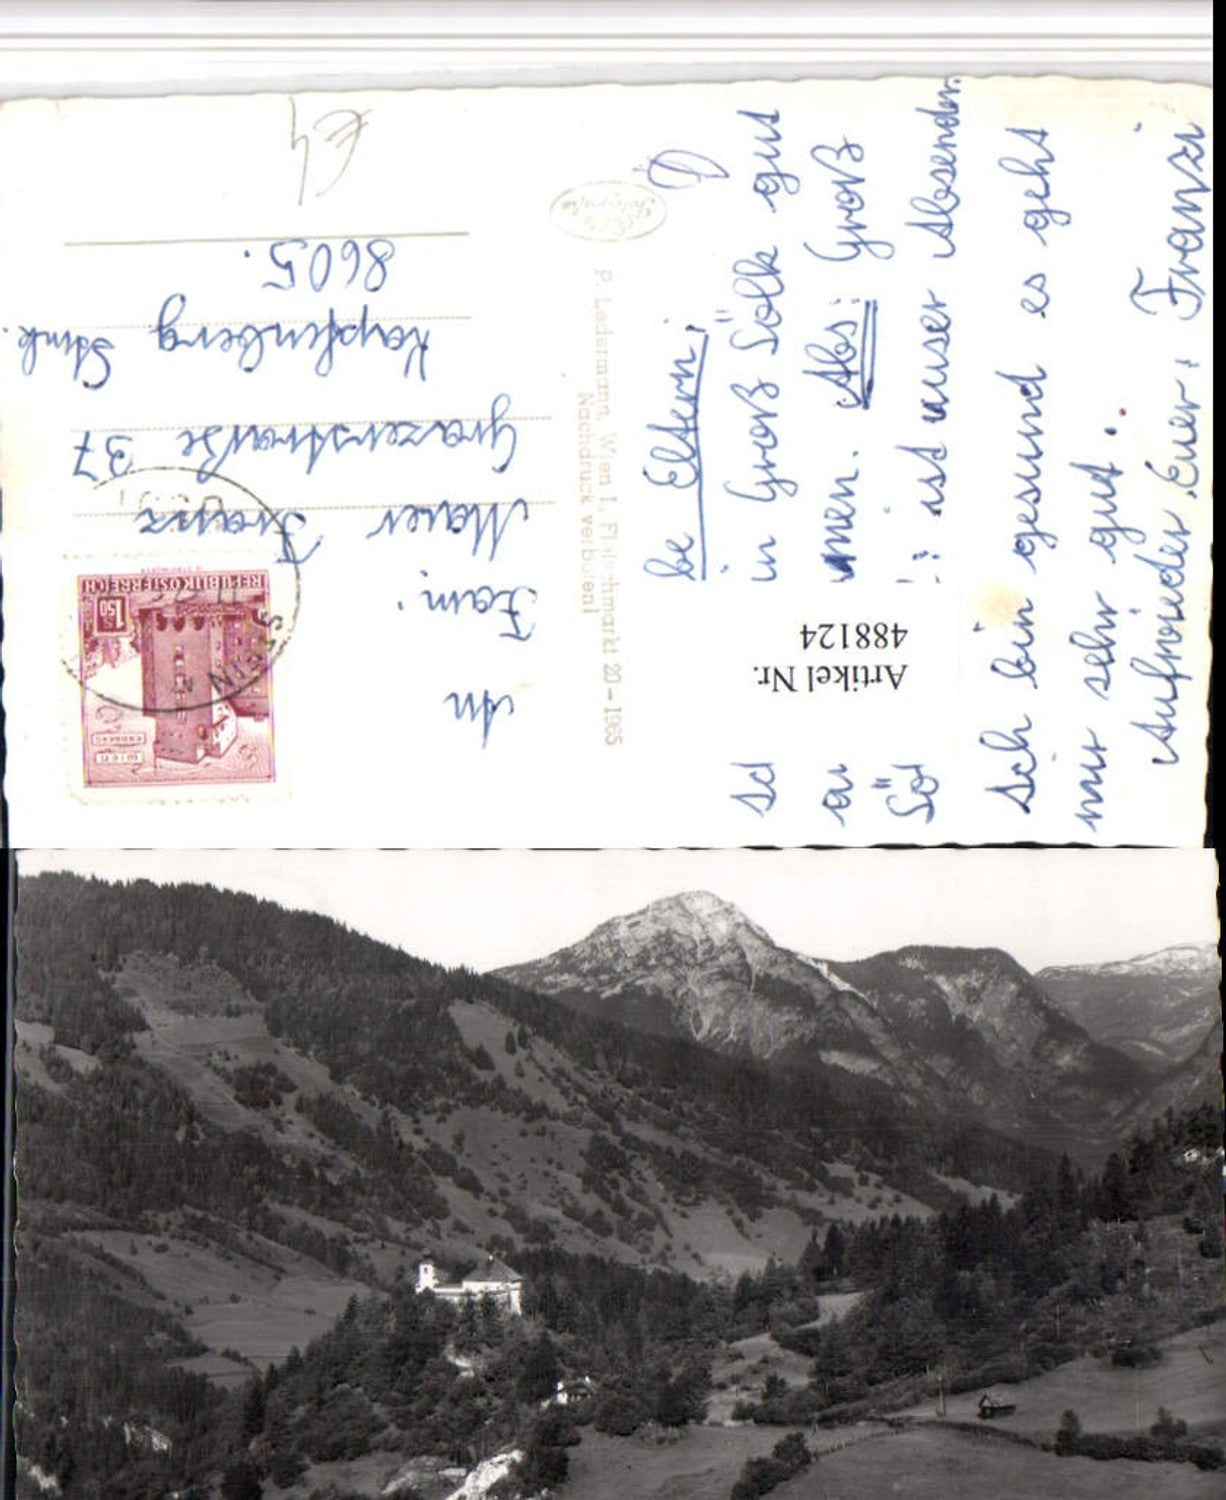 € 4
be Eltern!
in Groß Sölk gut
men. Abs: Groß
!: ist unser Absender.
Ich bin gesund es geht
mir sehr gut.
Aufwieder Euer, Franzi
Artikel Nr.
488124
P. Ledermann, Wien I, Fleischmarkt 20 – 1965
Nachdruck verboten!
An
Fam.
Maier Franz
Grazerstraße 37
Kapfenberg Stmk.
8605.
REPUBLIK ÖSTERREICH
1.50
WIEN
ERDBERG
STEIN